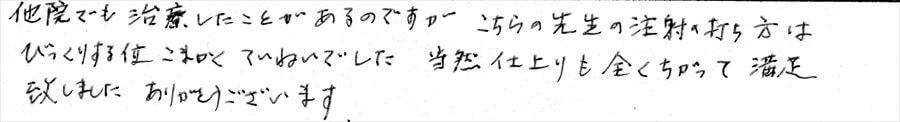 他院でも治療したことがあるのですが こちらの先生の注射の打ち方は
びっくりする位 こまかく ていねいでした 当然 仕上りも 全くちがって 満足
致しました ありがとうございます